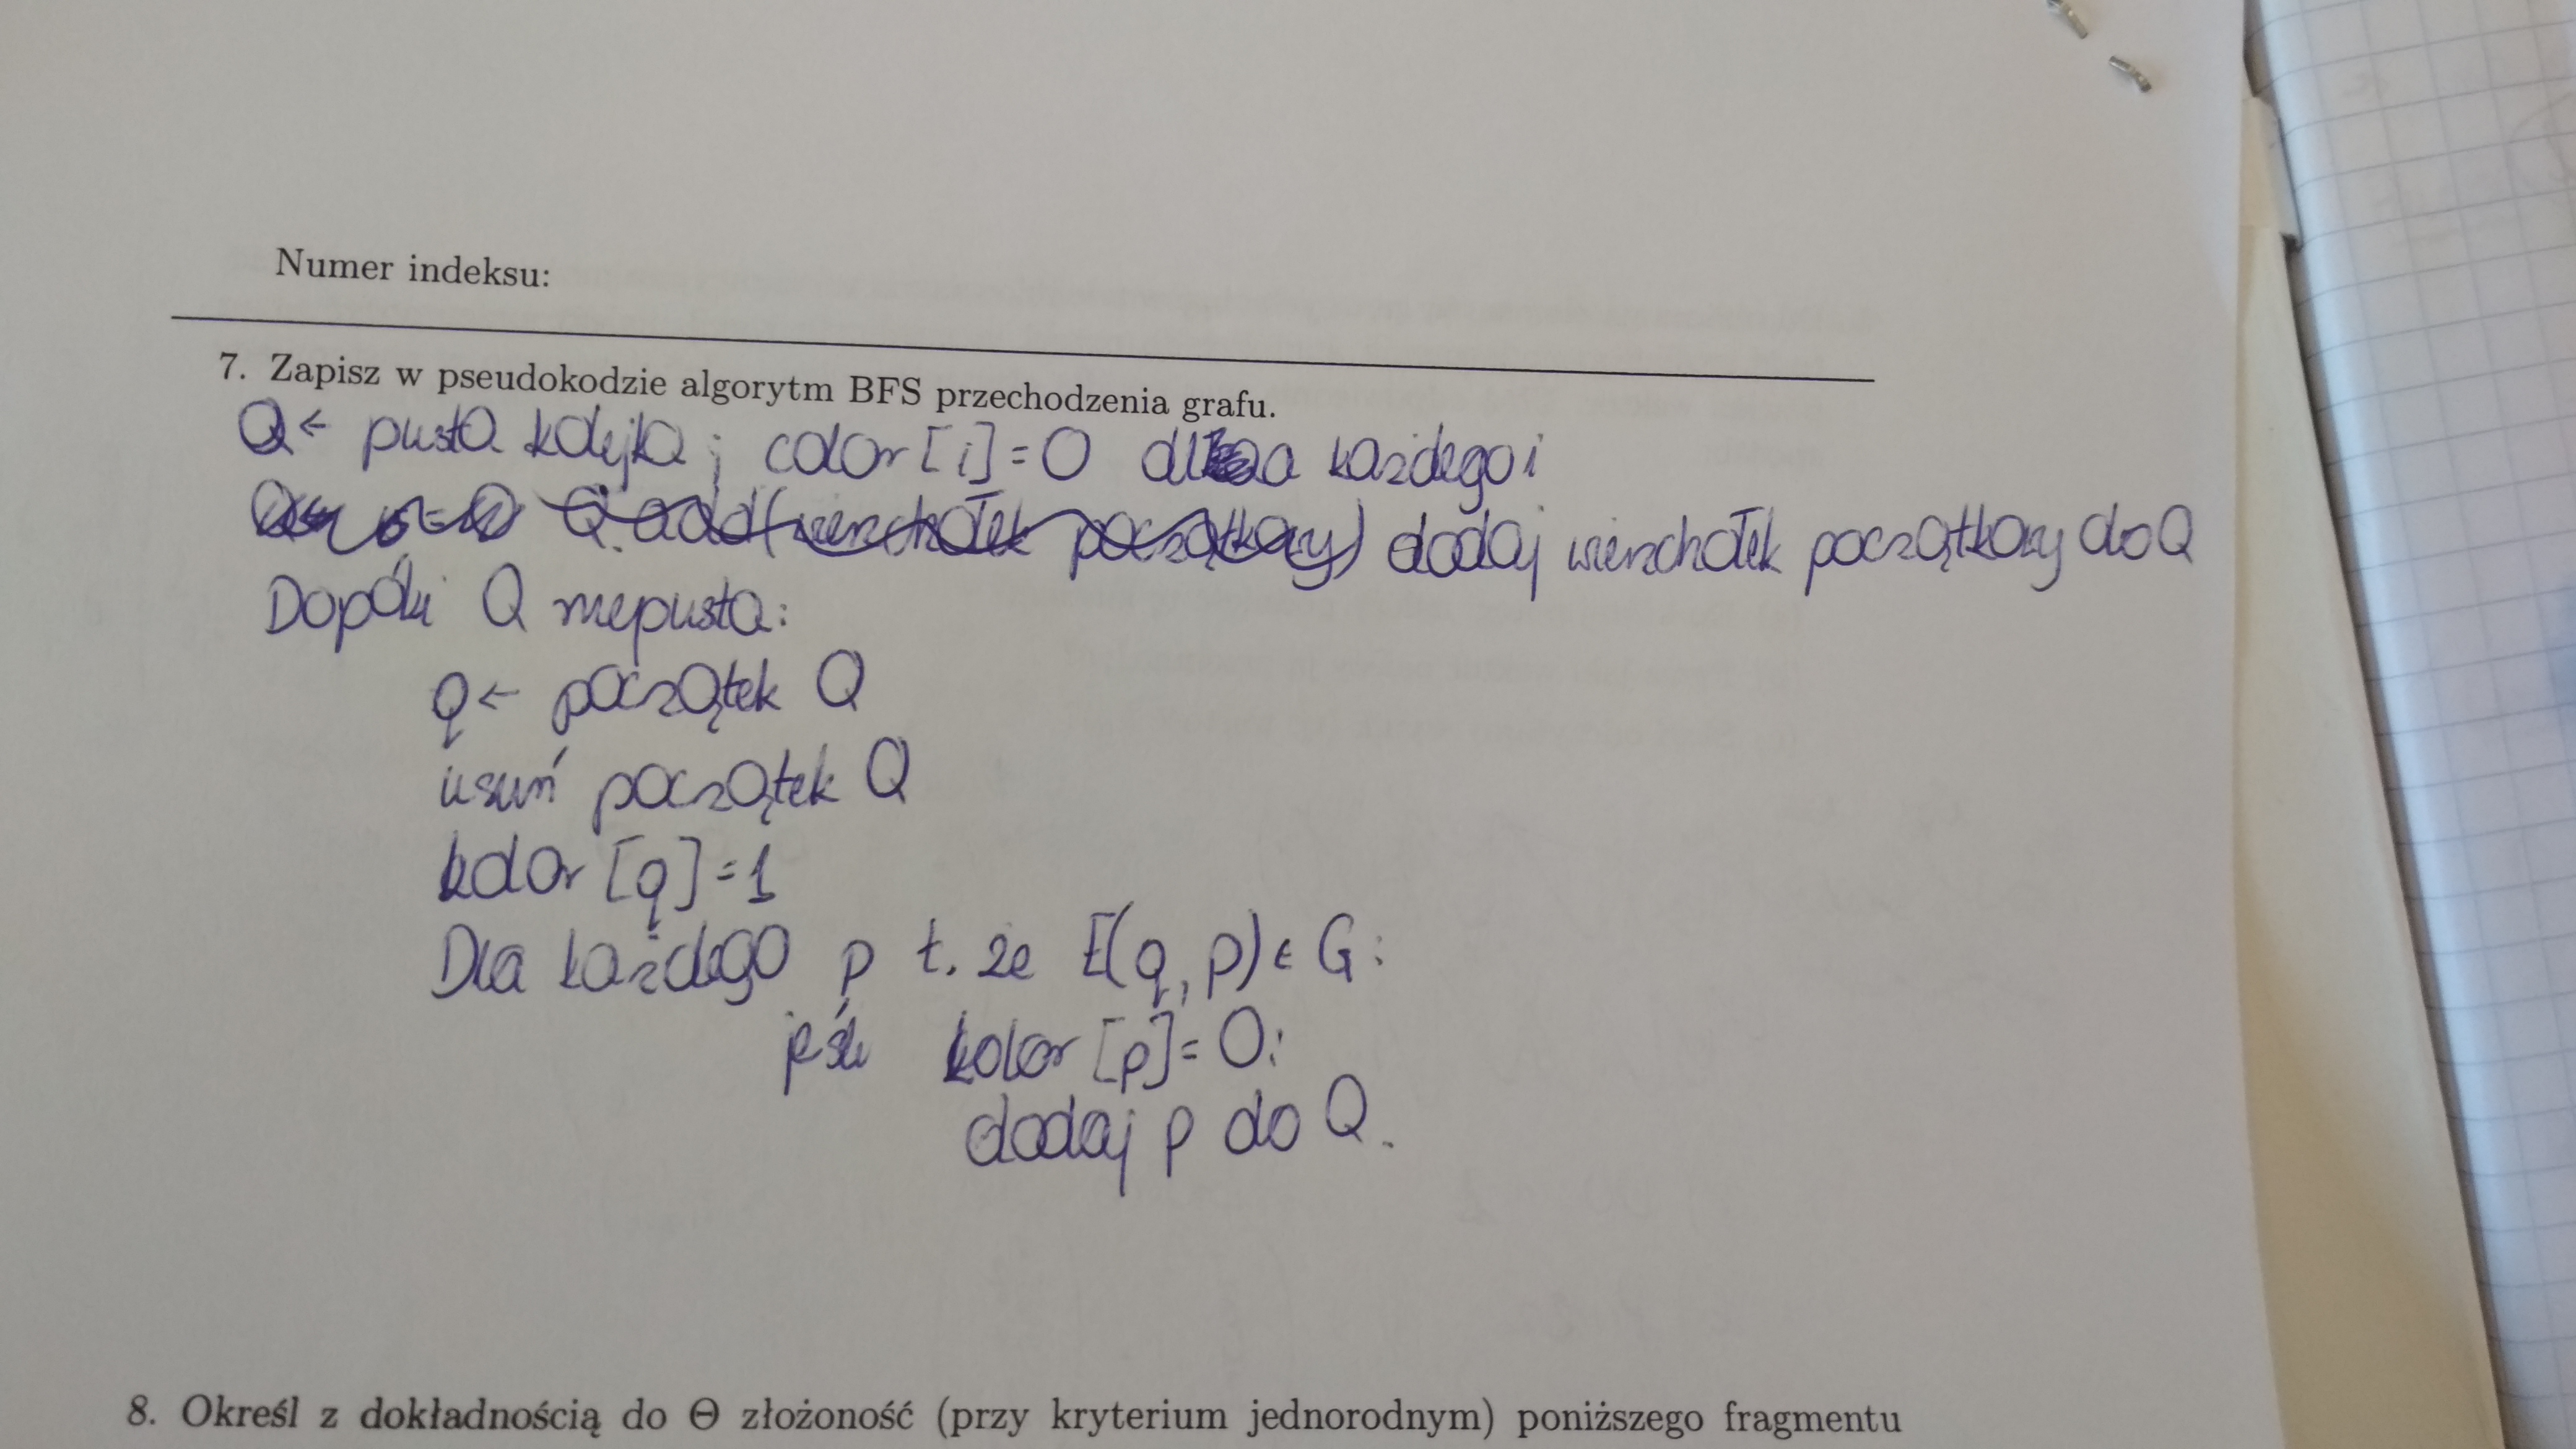 Numer indeksu:
7. Zapisz w pseudokodzie algorytm BFS przechodzenia grafu.
Q ← pusta kolejka ; color [i] = 0 dla każdego i
Q.add(wierzchołek początkowy) dodaj wierzchołek początkowy do Q
Dopóki Q niepusta:
q ← początek Q
usuń początek Q
kolor [q] = 1
Dla każdego p t. że E(q, p) ∈ G:
jeśli kolor [p] = 0:
dodaj p do Q.
8. Określ z dokładnością do Θ złożoność (przy kryterium jednorodnym) poniższego fragmentu